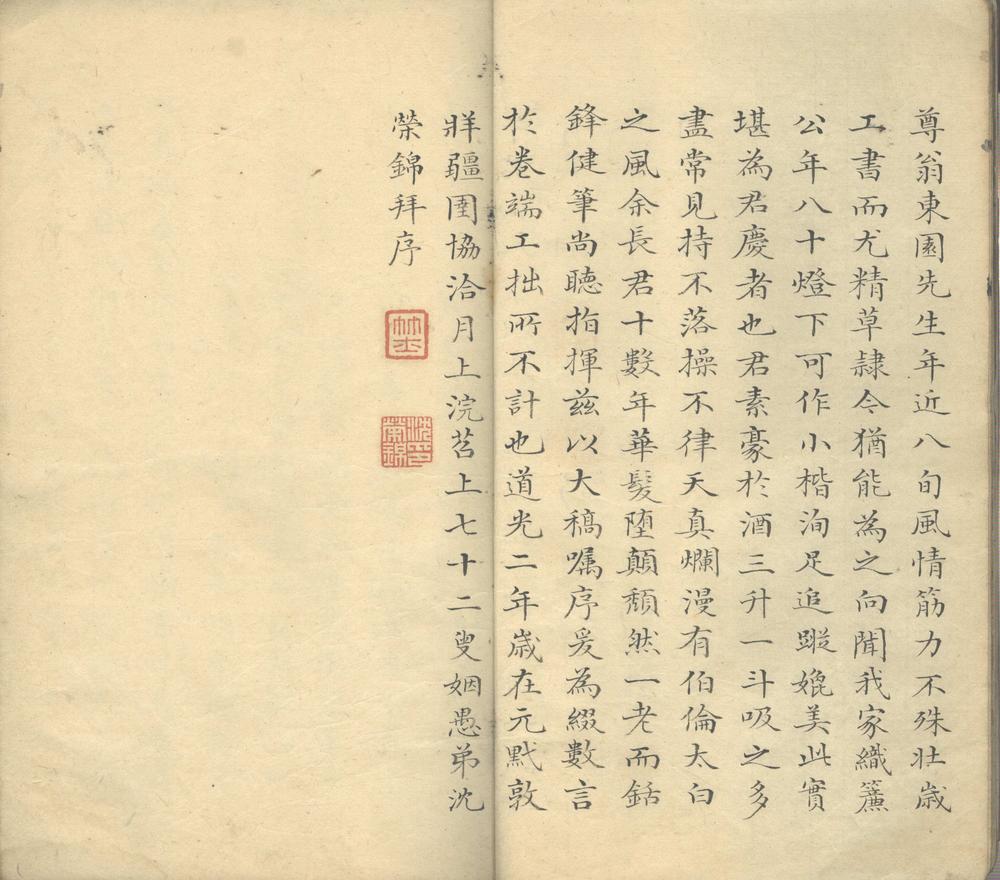 尊翁東園先生年近八旬風情筋力不殊壯歲
工書而尤精草隸今猶能為之向聞我家織簾
公年八十燈下可作小楷洵足追蹤媲美此實
堪為君慶者也君素豪於酒三升一斗吸之多
盡常見持不落操不律天真爛漫有伯倫太白
之風余長君十數年華髮墮顛頹然一老而銛
鋒健筆尚聽指揮茲以大稿嘱序爰為綴數言
於卷端工拙所不計也道光二年歲在元黓敦
牂疆圉協洽月上浣苕上七十二叟姻愚弟沈
榮錦拜序
沈榮錦印